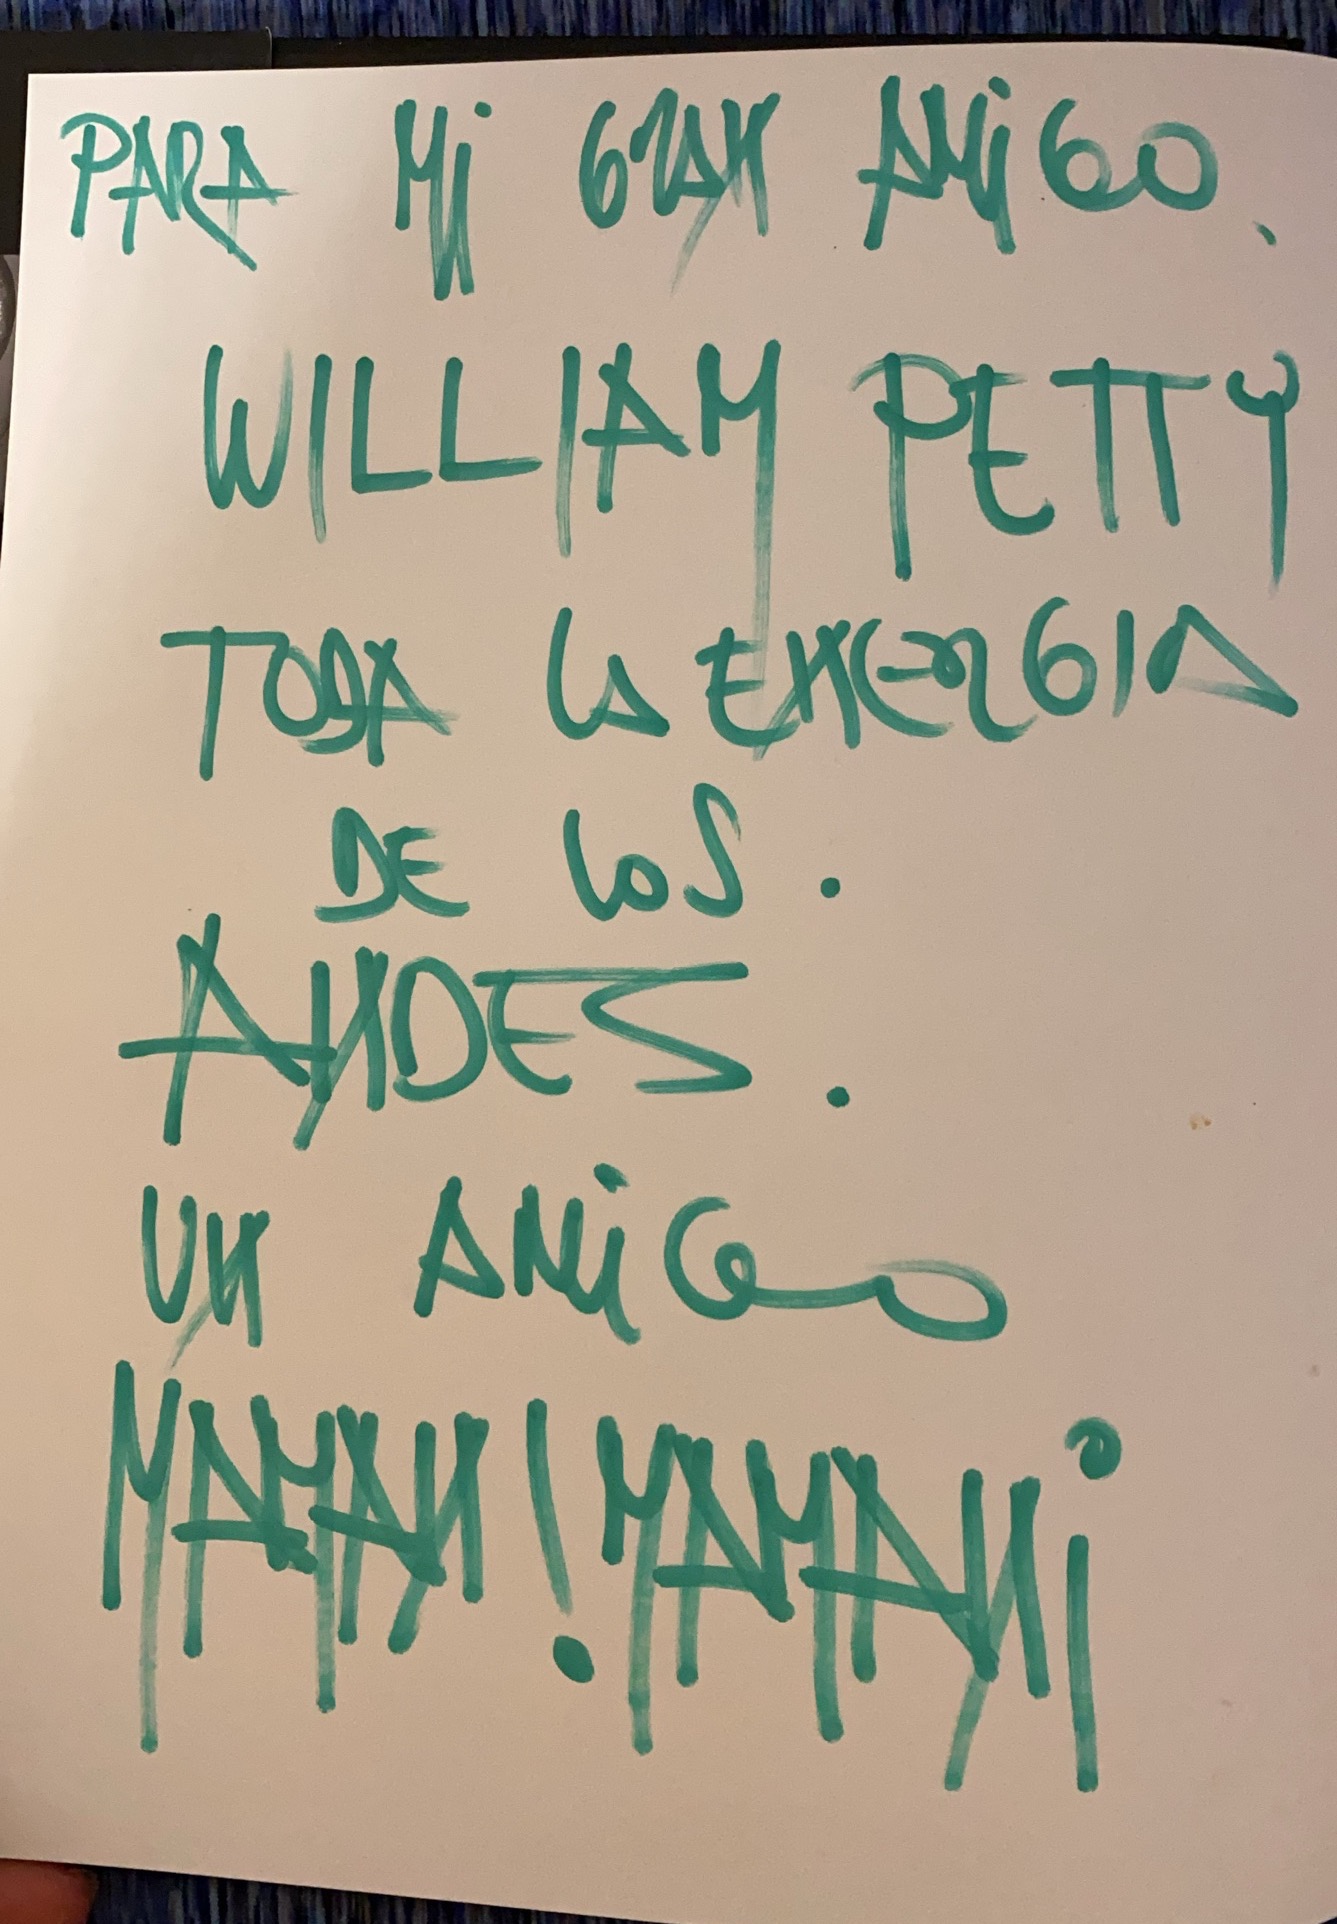 PARA Mi GRAN AMiGO.
WILLIAM PETTY
TODA LA ENERGIA
DE LOS.
ANDES.
UN AMiGO
MAMANI MAMANi